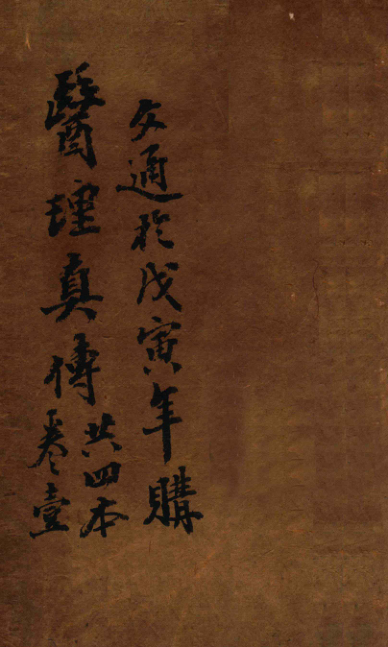 文通於戊寅年購
醫理真傳
共四本
卷壹